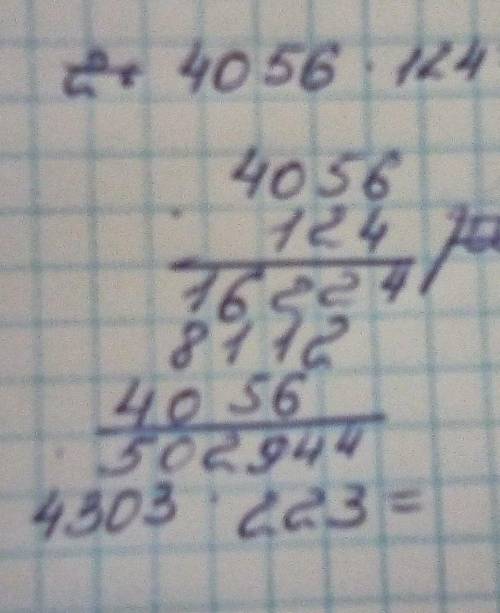 4056 · 124
4056
· 124
16224
8112
4056
502944
4303 · 223 =